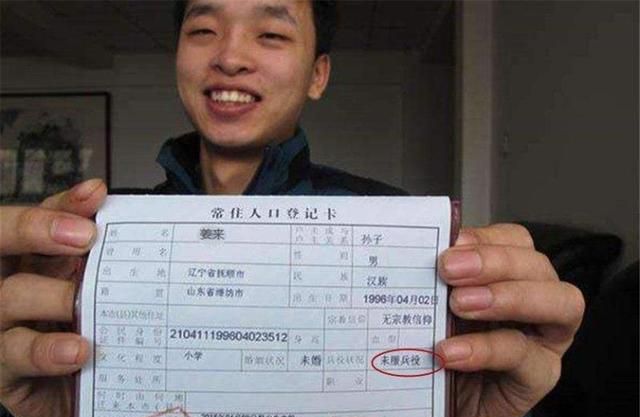 常住人口登记卡
姓名 姜来 户主或与户主关系 孙子
曾用名 性别 男
出生地 辽宁省抚顺市 民族 汉族
籍贯 山东省潍坊市 出生日期 1996年04月02日
本市(县)其他住址 宗教信仰 无宗教信仰
公民身份证件编号 210411199604023512 身高 血型
文化程度 小学 婚姻状况 未婚 兵役状况 未服兵役
服务处所 职业
何时由何地
迁来本市(县)